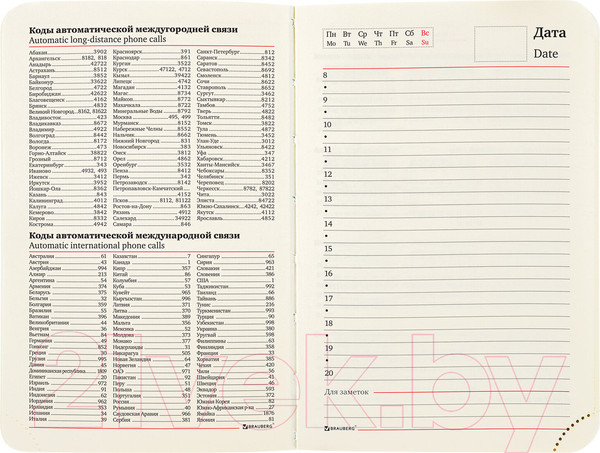 Коды автоматической междугородней связи
Automatic long-distance phone calls
Абакан 3902
Архангельск 8182, 818
Анадырь 42722
Астрахань 8512
Барнаул 3852
Байконур 33622
Белгород 4722
Биробиджан 42622
Благовещенск 4162
Брянск 483
Великий Новгород 8162, 81622
Владивосток 423
Владикавказ 8672
Владимир 4922
Волгоград 8442
Вологда 8172
Воронеж 473
Горно-Алтайск 38822
Грозный 8712
Екатеринбург 343
Иваново 4932, 493
Ижевск 3412
Иркутск 3952
Йошкар-Ола 8362
Казань 843
Калининград 4012
Калуга 4842
Кемерово 3842
Киров 8332
Кострома 4942
Красноярск 391
Краснодар 861
Курган 3522
Курск 47122, 4712
Кызыл 39422
Липецк 4742
Магадан 4132
Магас 8734
Майкоп 8772
Махачкала 8722
Минеральные Воды 8792
Москва 495, 499
Мурманск 8152
Набережные Челны 8552
Нальчик 8662
Нижний Новгород 831
Новосибирск 383
Омск 3812
Орел 4862
Оренбург 3532
Пенза 8412
Пермь 342
Петрозаводск 8142
Петропавловск-Камчатский
4152
Псков 8112, 81122
Ростов-на-Дону 863
Рязань 4912
Салехард 34922
Самара 846
Санкт-Петербург 812
Саранск 8342
Саратов 8452
Севастополь 8692
Смоленск 4812
Сочи 8622
Ставрополь 8652
Сургут 3462
Сыктывкар 8212
Тамбов 4752
Тверь 4822
Тольятти 8482
Томск 3822
Тула 4872
Тюмень 3452
Улан-Удэ 3012
Ульяновск 8422
Уфа 347
Хабаровск 4212
Ханты-Мансийск 3467
Чебоксары 8352
Челябинск 351
Череповец 8202
Черкесск 8782, 87822
Чита 3022
Элиста 84722
Южно-Сахалинск 4242, 42422
Якутск 4112
Ярославль 4852
Коды автоматической международной связи
Automatic international phone calls
Австралия 61
Австрия 43
Азербайджан 994
Алжир 213
Аргентина 54
Армения 374
Беларусь 375
Бельгия 32
Болгария 359
Бразилия 55
Ватикан 396
Великобритания 44
Венгрия 36
Вьетнам 84
Германия 49
Гонконг 852
Греция 30
Грузия 995
Дания 45
Доминиканская республика 1809
Египет 20
Израиль 972
Индия 91
Индонезия 62
Иордания 962
Ирландия 353
Испания 34
Италия 39
Казахстан 7
Канада 1
Кипр 357
Китай 86
Колумбия 57
Куба 53
Кувейт 965
Кыргызстан 996
Латвия 371
Литва 370
Македония 389
Мальта 356
Мексика 52
Молдова 373
Монако 377
Нидерланды 31
Никарагуа 505
Новая Зеландия 64
Норвегия 47
ОАЭ 971
Пакистан 92
Перу 51
Польша 48
Португалия 351
Россия 7
Румыния 40
Саудовская Аравия 966
Сербия 381
Сингапур 65
Сирия 963
Словакия 421
Словения 386
США 1
Таджикистан 992
Таиланд 66
Тайвань 886
Тунис 216
Туркменистан 993
Турция 90
Узбекистан 998
Украина 380
Уругвай 598
Филиппины 63
Финляндия 358
Франция 33
Хорватия 385
Чехия 420
Чили 56
Швейцария 41
Швеция 46
Эквадор 593
Эстония 372
Южная Корея 82
Южно-Африканская р-ка 27
Ямайка 1876
Япония 81
BRAUBERG
Пн Вт Ср Чт Пт Сб Вс
Mo Tu We Th Fr Sa Su
Дата
Date
8
9
10
11
12
13
14
15
16
17
18
19
20
Для заметок
BRAUBERG
21vek.by